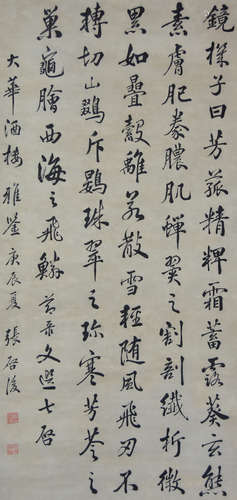 鏡機子曰芳菰精粺霜蓄露葵玄熊
素膚肥豢膿肌蟬翼之割剖纖析微
累如疊縠離若散雪輕随風飛刃不
轉切山鷄斥鷃珠翠之珍寒芳苓之
巢龜膾西海之飛鱗 節录文選七启
大華酒楼雅鑒 庚辰夏 張啓後